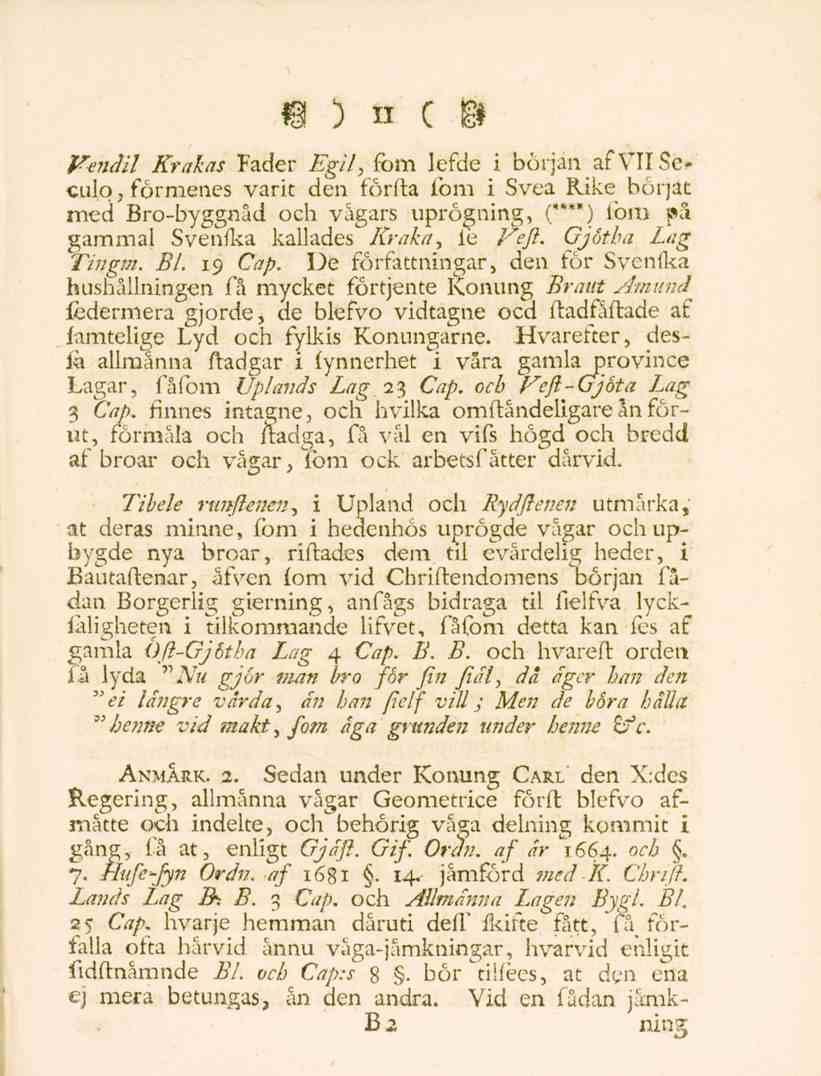 ) 11 (
Vendil Krakas Fader Egil, ſom lefde i början af VII Se-
culo, förmenes varit den förſta ſom i Svea Rike börjat
med Bro-byggnåd och vågars uprögning, (****) ſom på
gammal Svenſka kallades Kraka, ſe Veſt. Gjötha Lag
Tingm. Bl. 19 Cap. De författningar, den för Svenſka
hushållningen ſå mycket förtjente Konung Braut Amund
ſedermera gjorde, de blefvo vidtagne ocd ſtadfåſtade af
ſamtelige Lyd och fylkis Konungarne. Hvarefter, des-
ſa allmånna ſtadgar i ſynnerhet i våra gamla province
Lagar, ſåſom Uplands Lag 23 Cap. och Veſt-Gjöta Lag
3 Cap. finnes intagne, och hvilka omſtåndeligare ån för-
ut, förmåla och ſtadga, ſå vål en viſs högd och bredd
af broar och vågar, ſom ock arbetsſåtter dårvid.
Tibele runſtenen, i Upland och Rydſtenen utmårka,
at deras minne, ſom i hedenhös uprögde vågar och up-
bygde nya broar, riſtades dem til evårdelig heder, i
Bautaſtenar, åfven ſom vid Chriſtendomens början ſå-
dan Borgerlig gierning, anſågs bidraga til ſielfva lyck-
ſaligheten i tilkommande lifvet, ſåſom detta kan ſes af
gamla Öſt-Gjötha Lag 4 Cap. B. B. och hvareſt orden
ſå lyda ”Nu gjör man bro för ſin ſiål, då åger han den
”ei långre vårda, ån han ſielf vill; Men de böra hålla
”henne vid makt, ſom åga grunden under henne &c.
ANMÅRK. 2. Sedan under Konung CARL den X:des
Regering, allmånna vågar Geometrice förſt blefvo af-
måtte och indelte, och behörig våga delning kommit i
gång, ſå at, enligt Gjåſt. Gif. Ordn. af år 1664. och §.
7. Huſe-ſyn Ordn. af 1681 §. 14. jåmförd med K. Chriſt.
Lands Lag B. B. 3 Cap. och Allmånna Lagen Bygl. Bl.
25 Cap. hvarje hemman dåruti deſſ ſkifte fått, ſå för-
falla ofta hårvid ånnu våga-jåmkningar, hvarvid enligit
ſidſtnåmnde Bl. och Cap:s 8 §. bör tilſees, at den ena
ej mera betungas, ån den andra. Vid en ſådan jåmk-
B 2 ning